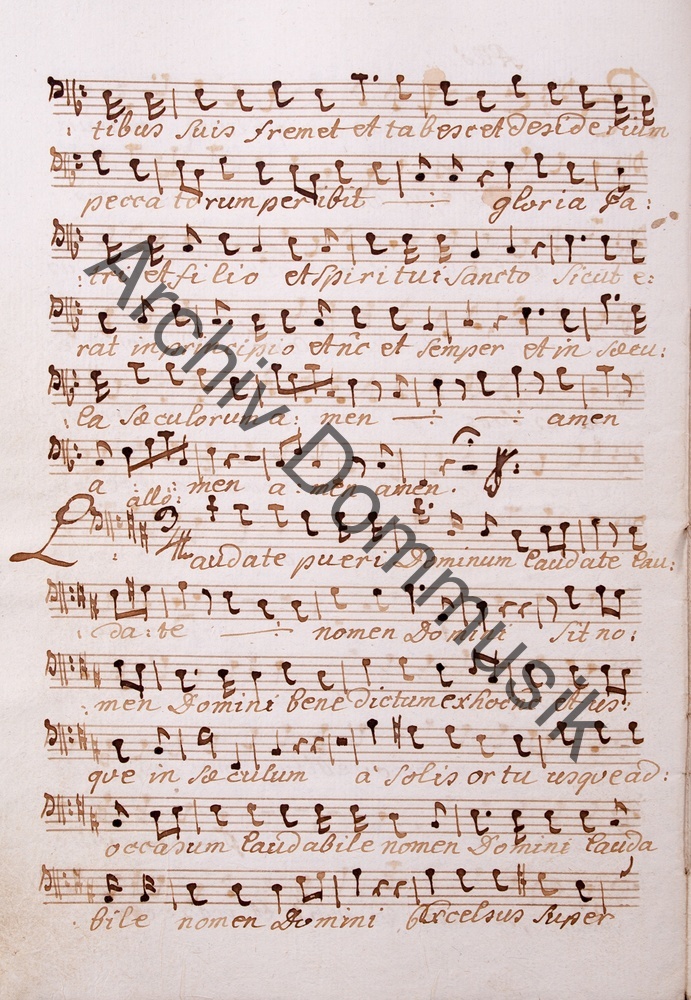 tibus suis fremet et tabescet desiderium
peccatorum peribit gloria Pa:
tri et filio et Spiritui Sancto sicut e:
rat in principio et nc et semper et in sæcu:
la sæculorum a: men amen
a men a: men amen.
allo:
Laudate pueri Dominum laudate lau:
da: te nomen Domini sit no:
men Domini benedictum ex hoc nc et us:
que in sæculum a solis ortu usque ad:
occasum laudabile nomen Domini lauda
bile nomen Domini Excelsus super
Archiv Dommusik